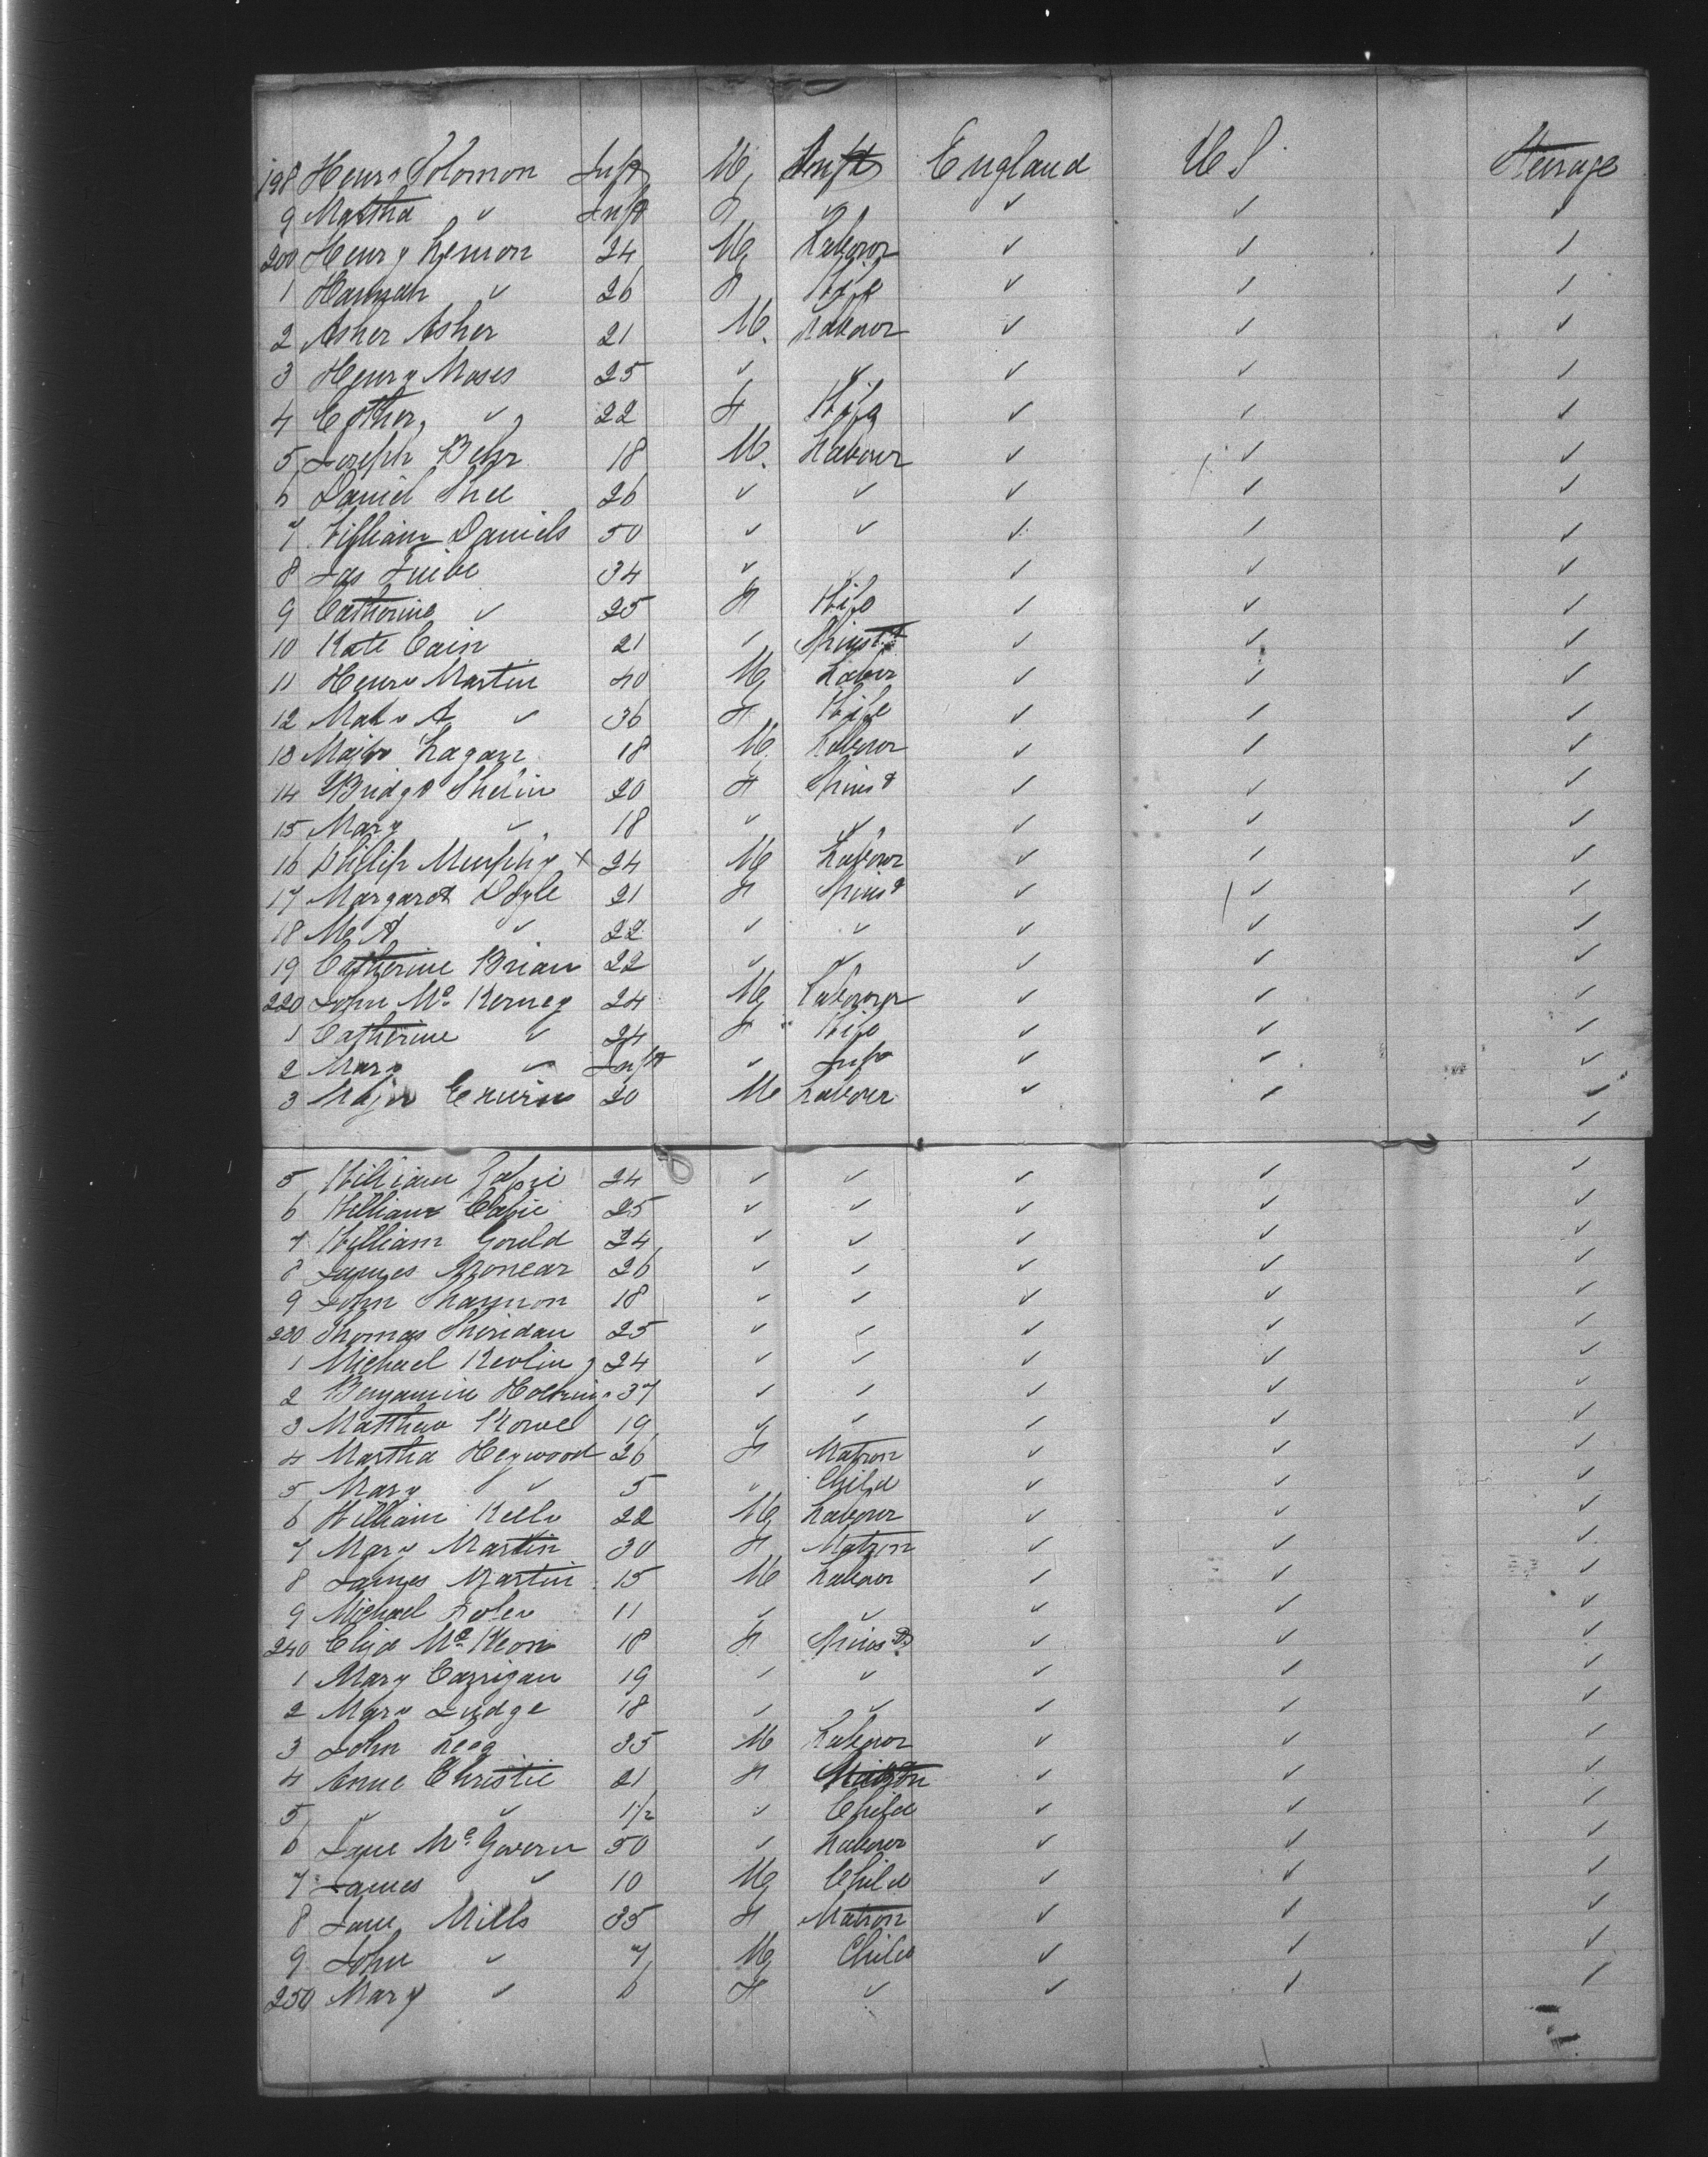 198 Henry Solomon Inft M Inft England U S Steerage
9 Martha ✓ Inft F ✓ ✓ ✓ ✓
200 Henry Lemon 24 M Labour ✓ ✓ ✓
1 Hannah ✓ 26 F Wife ✓ ✓ ✓
2 Asher Asher 21 M. Labour ✓ ✓ ✓
3 Henry Moses 25 ✓ ✓ ✓ ✓ ✓
4 Esther ✓ 22 F Wife ✓ ✓ ✓
5 Joseph Behr 18 M. Labour ✓ ✓ ✓
6 Daniel Shee 26 ✓ ✓ ✓ ✓ ✓
7 William Daniels 50 ✓ ✓ ✓ ✓ ✓
8 Jas 34 ✓ ✓ ✓ ✓
9 Catherine ✓ 25 F Wife ✓ ✓ ✓
10 Kate Cain 21 ✓ Spinstr ✓ ✓ ✓
11 Henry Martin 40 M Labor ✓ ✓ ✓
12 Mary A ✓ 36 F Wife ✓ ✓ ✓
13 Lagan 18 M Labour ✓ ✓ ✓
14 Bridgt 20 F Spinst ✓ ✓ ✓
15 Mary ✓ 18 ✓ ✓ ✓ ✓ ✓
16 Philip Murphy x 24 M Labour ✓ ✓ ✓
17 Margaret Doyle 21 F Spinst ✓ ✓ ✓
18 M A ✓ 22 ✓ ✓ ✓ ✓ ✓
19 Catherine Brian 22 ✓ ✓ ✓ ✓ ✓
220 John Mc Kerney 24 M Labourer ✓ ✓ ✓
1 Catherine ✓ 24 F Wife ✓ ✓ ✓
2 Mary ✓ Inft ✓ Inft ✓ ✓ ✓
3 20 M Labour ✓ ✓ ✓
✓
5 William 24 ✓ ✓ ✓ ✓ ✓
6 William 25 ✓ ✓ ✓ ✓ ✓
7 William Gould 24 ✓ ✓ ✓ ✓ ✓
8 James 26 ✓ ✓ ✓ ✓ ✓
9 John Shannon 18 ✓ ✓ ✓ ✓ ✓
230 Thomas Sheridan 25 ✓ ✓ ✓ ✓ ✓
1 Michael 24 ✓ ✓ ✓ ✓ ✓
2 Benjamin 37 ✓ ✓ ✓ ✓ ✓
3 Matthew Rowe 19 ✓ ✓ ✓ ✓ ✓
4 Martha Heywood 26 F Matron ✓ ✓ ✓
5 Mary ✓ 5 ✓ Child ✓ ✓ ✓
6 William Kelly 22 M Labour ✓ ✓ ✓
7 Mary Martin 30 F Matron ✓ ✓ ✓
8 James Martin 15 M Labour ✓ ✓ ✓
9 Michael 11 ✓ ✓ ✓ ✓ ✓
240 Eliza Mc Keon 18 F Spinst ✓ ✓ ✓
1 Mary Carrigan 19 ✓ ✓ ✓ ✓ ✓
2 Mary Judge 18 ✓ ✓ ✓ ✓ ✓
3 John 35 M Labour ✓ ✓ ✓
4 Anne Christie 21 F Matron ✓ ✓ ✓
5 ✓ ✓ 1½ ✓ Child ✓ ✓ ✓
6 Jane Mc Govern 50 ✓ Labour ✓ ✓ ✓
7 James ✓ 10 M Child ✓ ✓ ✓
8 Jane Mills 35 F Matron ✓ ✓ ✓
9 John ✓ 7 M Child ✓ ✓ ✓
250 Mary ✓ 6 F ✓ ✓ ✓ ✓